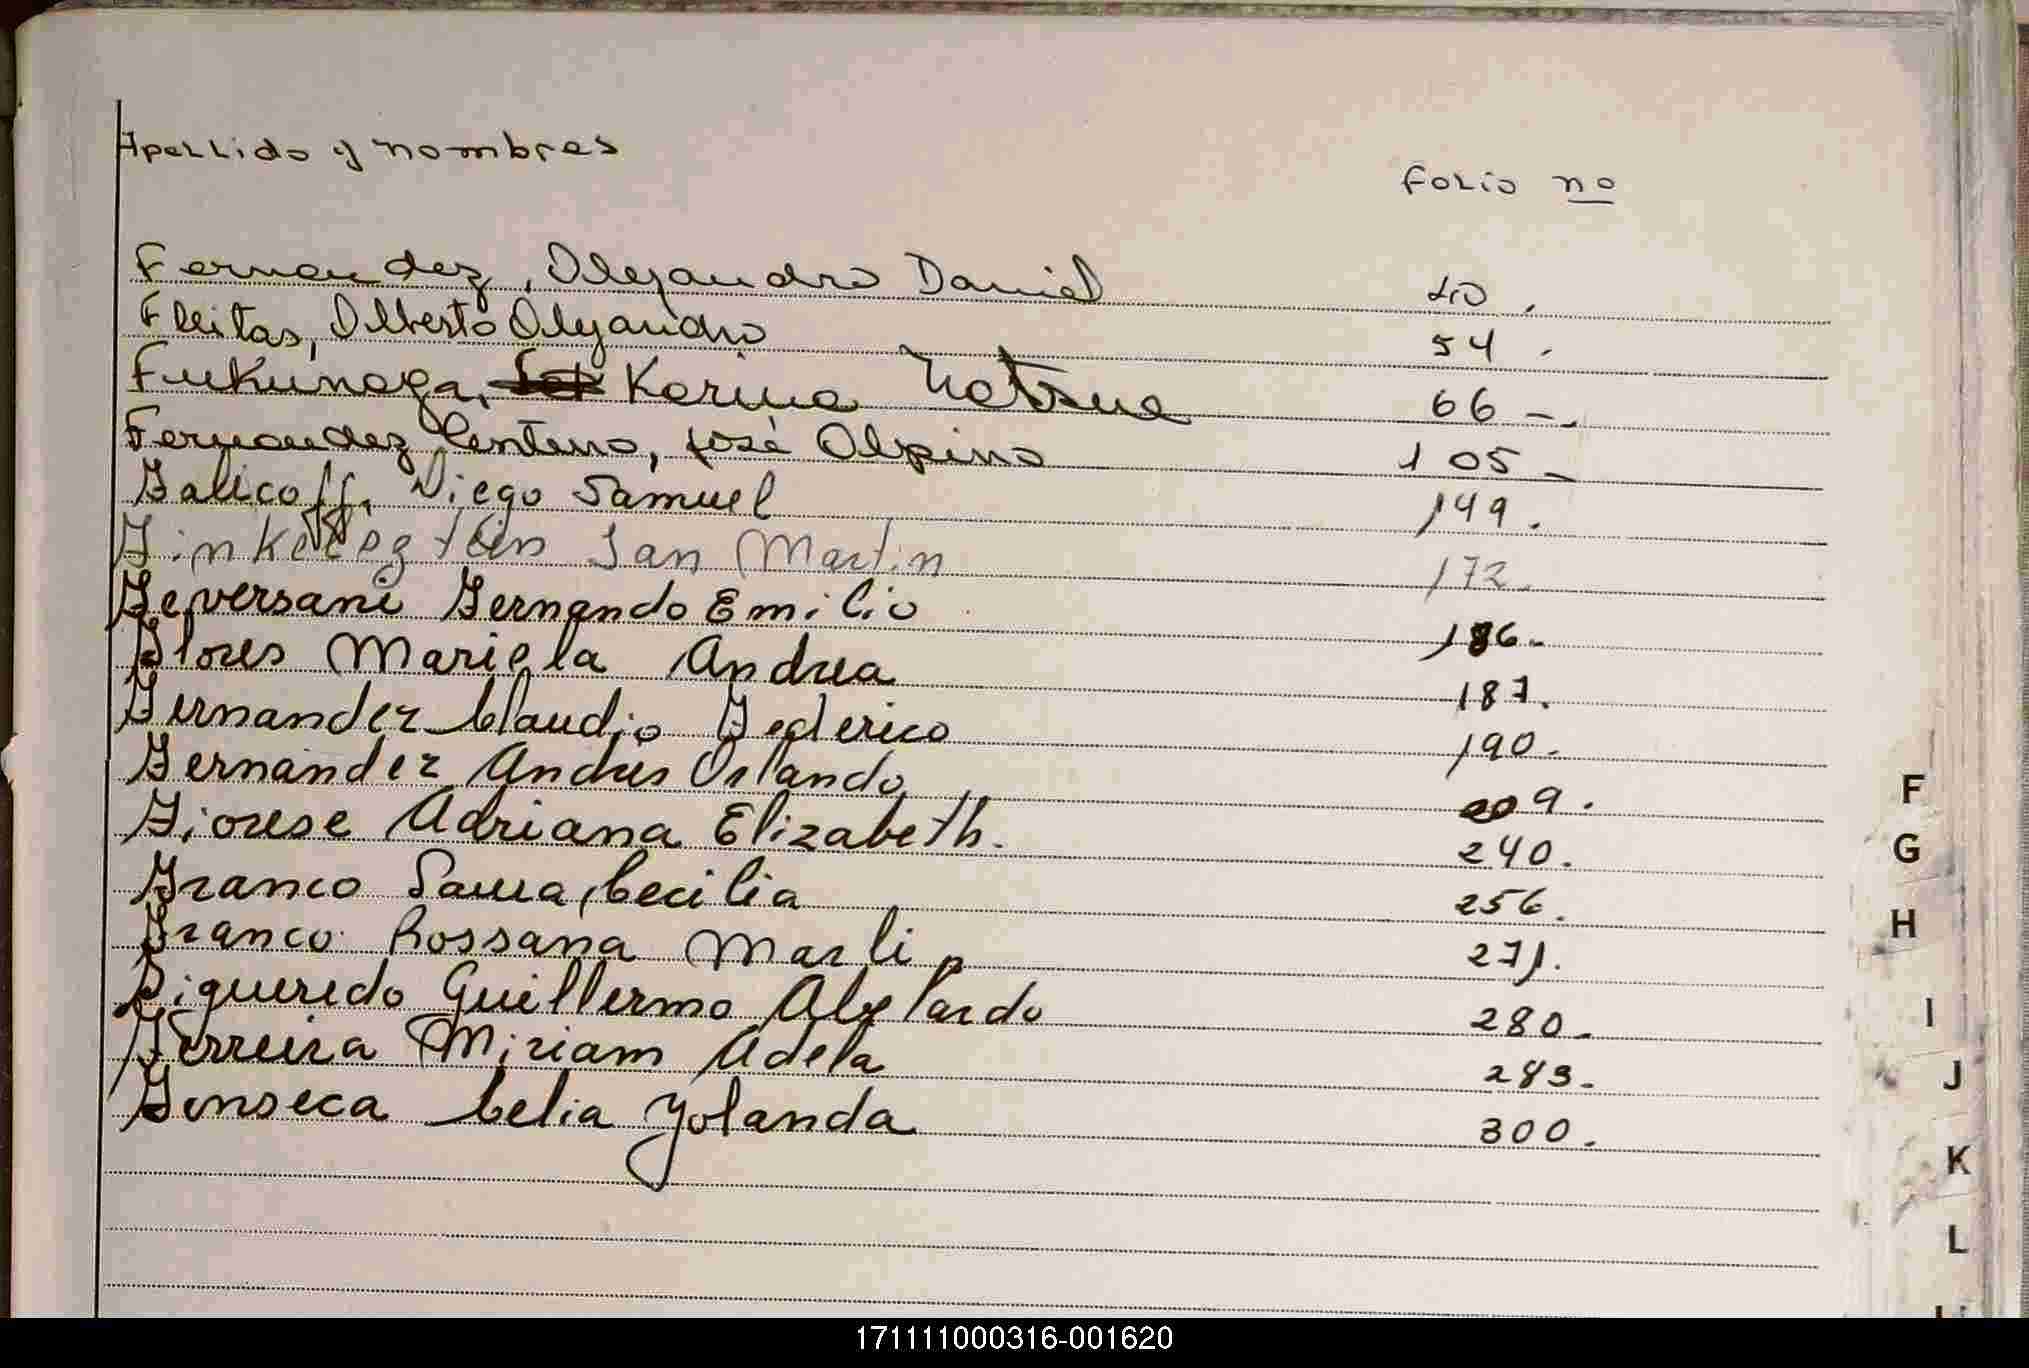 Apellido y nombres
Folio nº
Fernandez, Alejandro Daniel 40.
Fleitas, Alberto Alejandro 54.
Fukunaga, Karina Natsue 66-.
Fernandez Centeno, José Alpino 105-
Falicoff, Diego Samuel 149.
Finkelsztein San Martin 172.
Feversani Fernando Emilio 186.
Flores Mariela Andrea 187.
Fernandez Claudio Federico 190.
Fernandez Andres Orlando 209.
Fiorese Adriana Elizabeth. 240.
Franco Laura Cecilia 256.
Franco Rossana Marli 271.
Figueredo Guillermo Abelardo 280.
Ferreira Miriam Adela 283.
Fonseca Celia Yolanda 300.
F
G
H
I
J
K
L
171111000316-001620